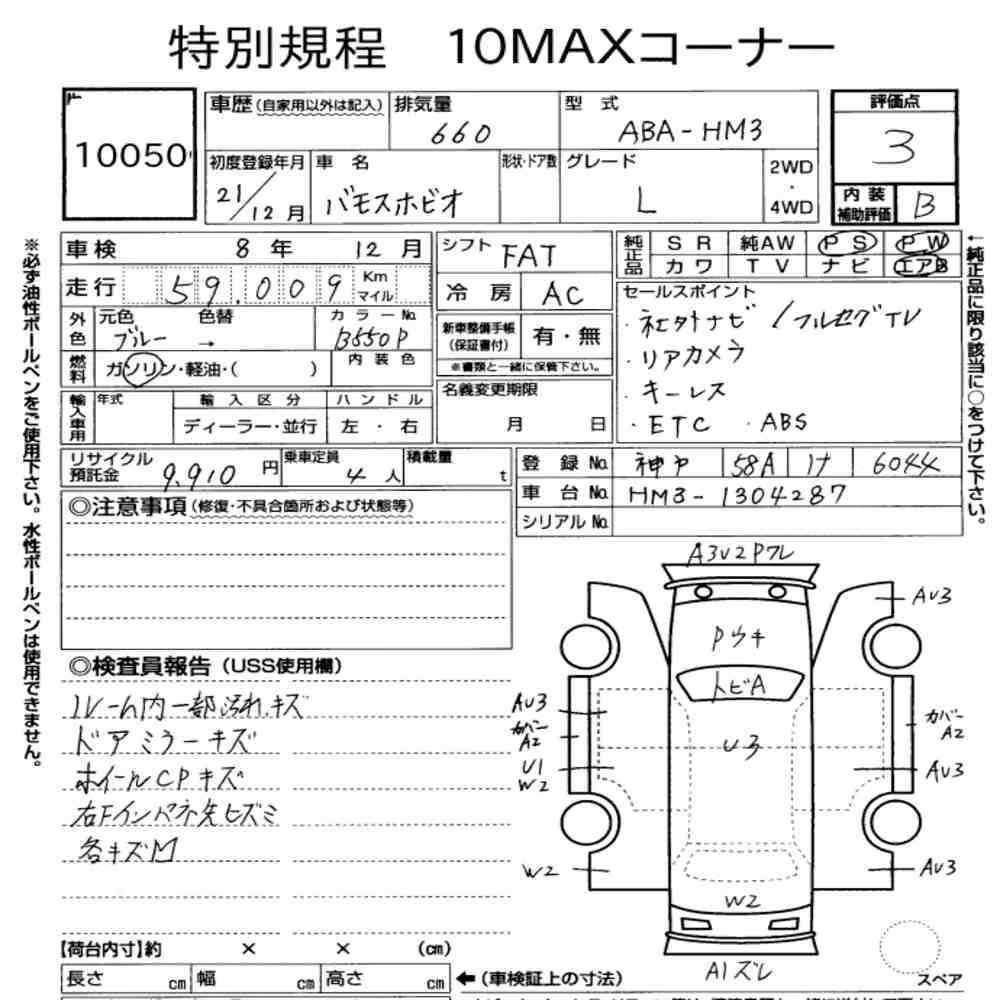 特別規程 10MAXコーナー
10050
車歴(自家用以外は記入)
排気量
660
型式
ABA-HM3
評価点
3
初度登録年月
21/12月
車名
バモスホビオ
形状・ドア数
グレード
L
2WD
・
4WD
内装
補助評価
B
車検 8年 12月
シフト FAT
純正品
SR 純AW PS PW
カワ TV ナビ エアB
走行 59.009 Km
マイル
冷房 AC
セールスポイント
・社外ナビ/フルセグTV
・リアカメラ
・キーレス
・ETC ・ABS
外色
元色 色替 カラーNo.
ブルー → B550P
新車整備手帳
(保証書付)
有・無
※書類と一緒に保管下さい。
燃料
ガソリン・軽油・( )
内装色
名義変更期限
月 日
輸入車用
年式
輸入区分 ハンドル
ディーラー・並行 左・右
リサイクル
預託金 9,910円
乗車定員
4人
積載量
t
登録No.
58A
6044
車台No. HM3-1304287
シリアルNo.
◎注意事項(修復・不具合箇所および状態等)
※必ず油性ボールペンをご使用下さい。水性ボールペンは使用できません。
←純正品に限り該当に○をつけて下さい。
◎検査員報告(USS使用欄)
ルーム内一部汚れ.キズ
ドアミラーキズ
ホイールCPキズ
右Fインパネ先ヒズミ
各キズM
A3V2Pワレ
AU3
Pウキ
トビA
AU3
カバー
A2
U3
カバー
A2
U1
W2
AU3
W2
AU3
W2
A1ズレ
スペア
【荷台内寸】約 × × (cm)
長さ cm 幅 cm 高さ cm ←(車検証上の寸法)